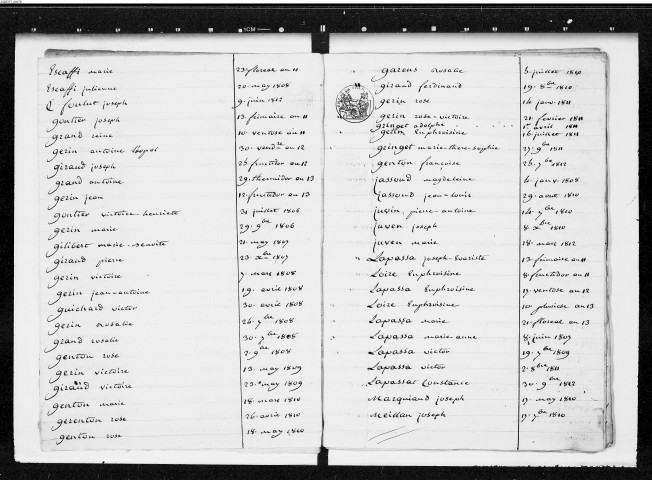 Escaffi marie 23 floreal an 11
Escaffi julienne 20 may 1808
joseph 9 juin 1812
gontier joseph 13 frimaire an 11
grand reine 10 ventose an 11
gerin antoine 30 vend.re an 12
giraud joseph 25 fructidor an 12
grand antoine 29 thermidor an 13
gerin jean 12 fructidor an 13
gontier victoire henriette 31 juillet 1806
gerin marie 29 9bre 1806
gilibert marie benoite 21 may 1807
giraud pierre 23 xbre 1807
gerin victoire 7 mars 1808
gerin jean-antoine 19 avril 1808
guichard victor 30 avril 1808
gerin Rosalie 26 7bre 1808
grand rosalie 30 7bre 1808
genton rose 2 9bre 1808
gerin victoire 13 may 1809
giraud victoire 23 may 1809
genton marie 18 mars 1810
gerenton rose 26 avril 1810
genton rose 18 may 1810
garens Rosalie 3 juillet 1810
girard ferdinand 19 8bre 1810
gerin rose 14 janv 1811
gerin rose-victoire 21 fevrier 1811
gringet adolphe 1er avril 1811
gerin Euphroisine 16 juillet 1811
ginget marie-therse-sophie 27 9bre 1811
genton françoise 26 7bre 1812
jassoud magdeleine 4 janv 1808
jassoud jean-louis 29 aout 1810
juvin pierre-antoine 14 7bre 1810
juven joseph 8 xbre 1810
juven marie 18 mars 1812
Lapassa joseph-Evariste 13 frimaire an 11
Loire Euphroisine 8 fructidor an 11
Lapassa Euphroisine 17 ventose an 12
Loire Euphroisine 10 pluviose an 13
Lapassa marie 21 floreal an 13
Lapassa marie-anne 8 juin 1807
Lapassa victor 19 7bre 1809
Lapassa victor 2 8bre 1811
Lapassat Constance 30 9bre 1812
Marquiand joseph 17 may 1810
Meillan joseph 17 7bre 1810